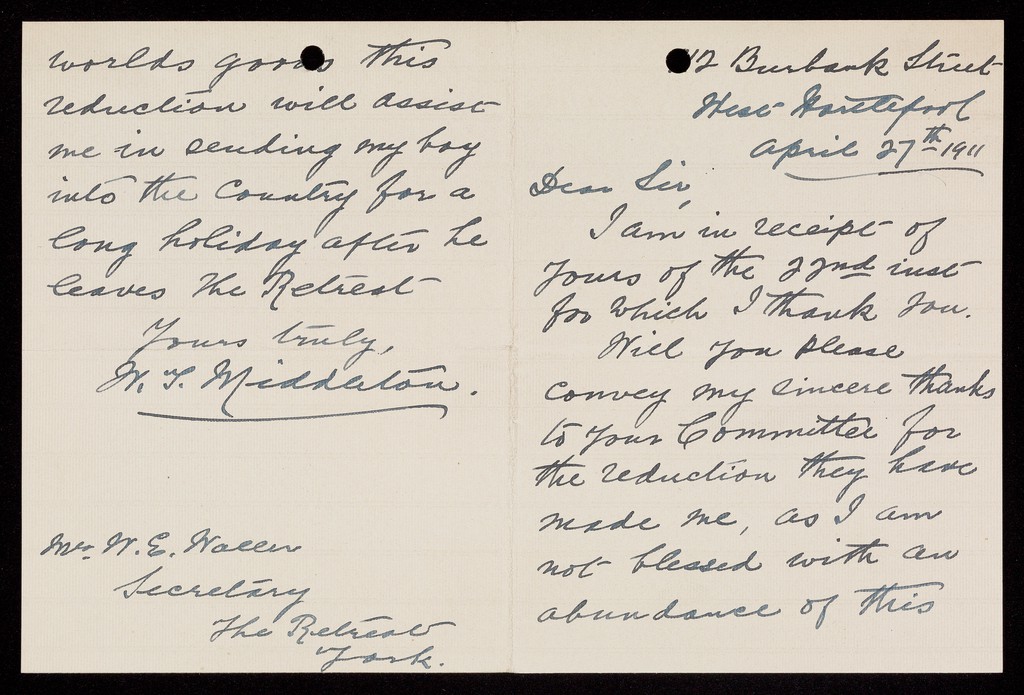 112 Burbank Street
West Hartlepool
April 27th 1911
Dear Sir,
I am in receipt of
yours of the 22nd inst
for which I thank you.
Will you please
convey my sincere thanks
to your Committee for
the reduction they have
made me, as I am
not blessed with an
abundance of this
worlds goods this
reduction will assist
me in sending my boy
into the Country for a
long holiday after he
leaves the Retreat
Yours truly,
W. T. Middleton.
Mr. W. E. Waller
Secretary
The Retreat
York.